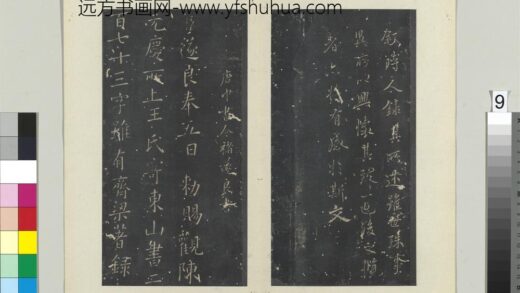 远方书画网-www.yfshuhua.com
叙时人录其所述虽世殊事
異所以興懷其致一也後之攬
者亦將有感於斯文
唐中書令褚遂良
遂良奉五日勅賜觀陳
元慶所上王氏
東山書二
百七十三字雖有齊梁
錄
9